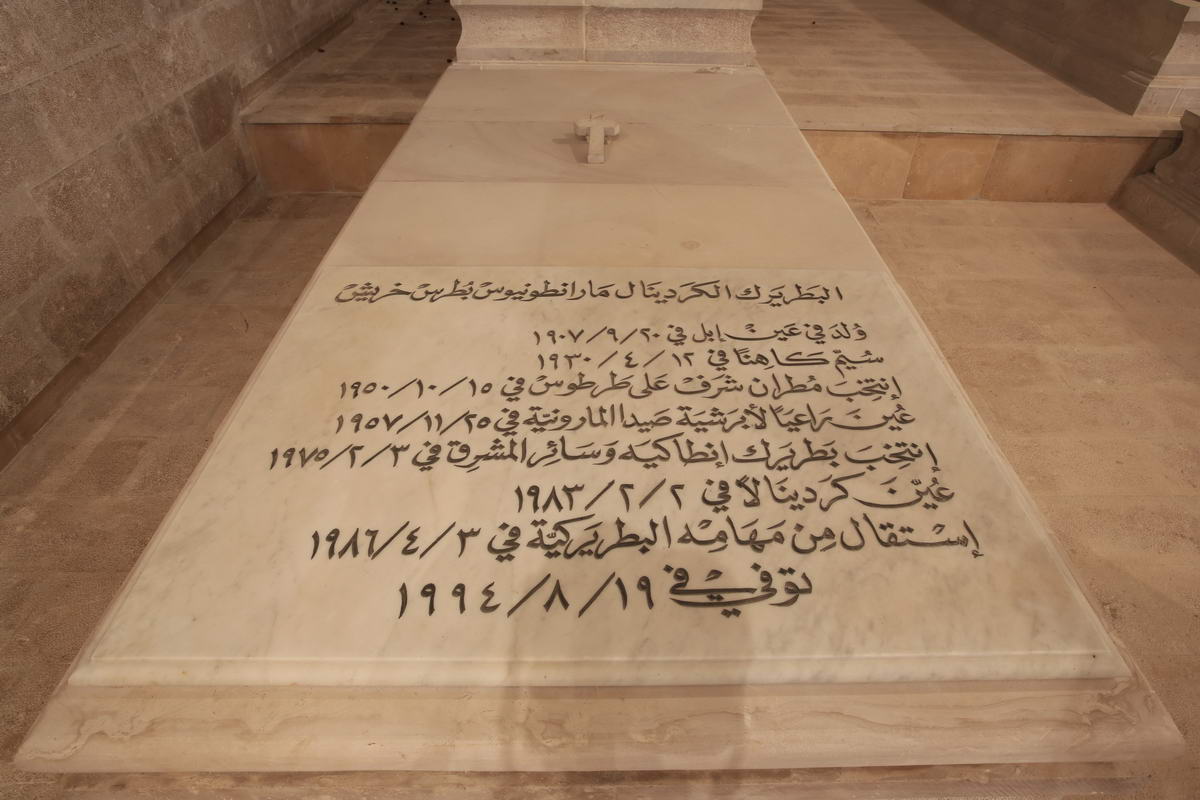 البَطريَرك الكَردينَال مَار انطونيوسْ بُطرسْ خريشْ
وُلدَ في عَينْ إبل في ٢٠/٩/١٩٠٧
سُيِّمَ كاهِنًا في ١٢/٤/١٩٣٠
إنتُخِبَ مُطران شرَفْ عَلى طَرطوسْ في ١٥/١٠/١٩٥٠
عُينَ رَاعيًا لأبرَشيَة صَيدا المارونيّة في ٢٥/١١/١٩٥٧
إنتُخِبَ بَطريَرك إنطاكيَه وَسَائِر المشْرِق في ٣/٢/١٩٧٥
عُيّنَ كَردينَالاً في ٢/٢/١٩٨٣
إسْتقال مِن مَهَامِهْ البطريَركيّة في ٣/٤/١٩٨٦
توَفيَ في ١٩/٨/١٩٩٤